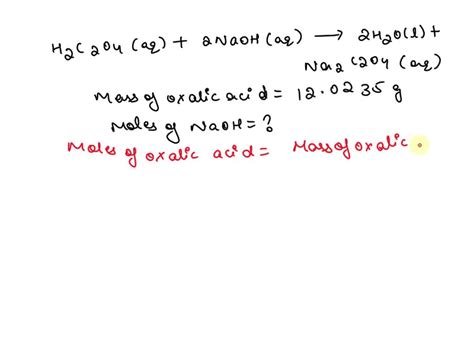 H2C2O4 (aq) + 2NaOH (aq) → 2H2O(l) +
Na2C2O4 (aq)
Mass of oxalic acid = 12.0235 g
Moles of NaOH = ?
Moles of oxalic acid = Mass of oxalic